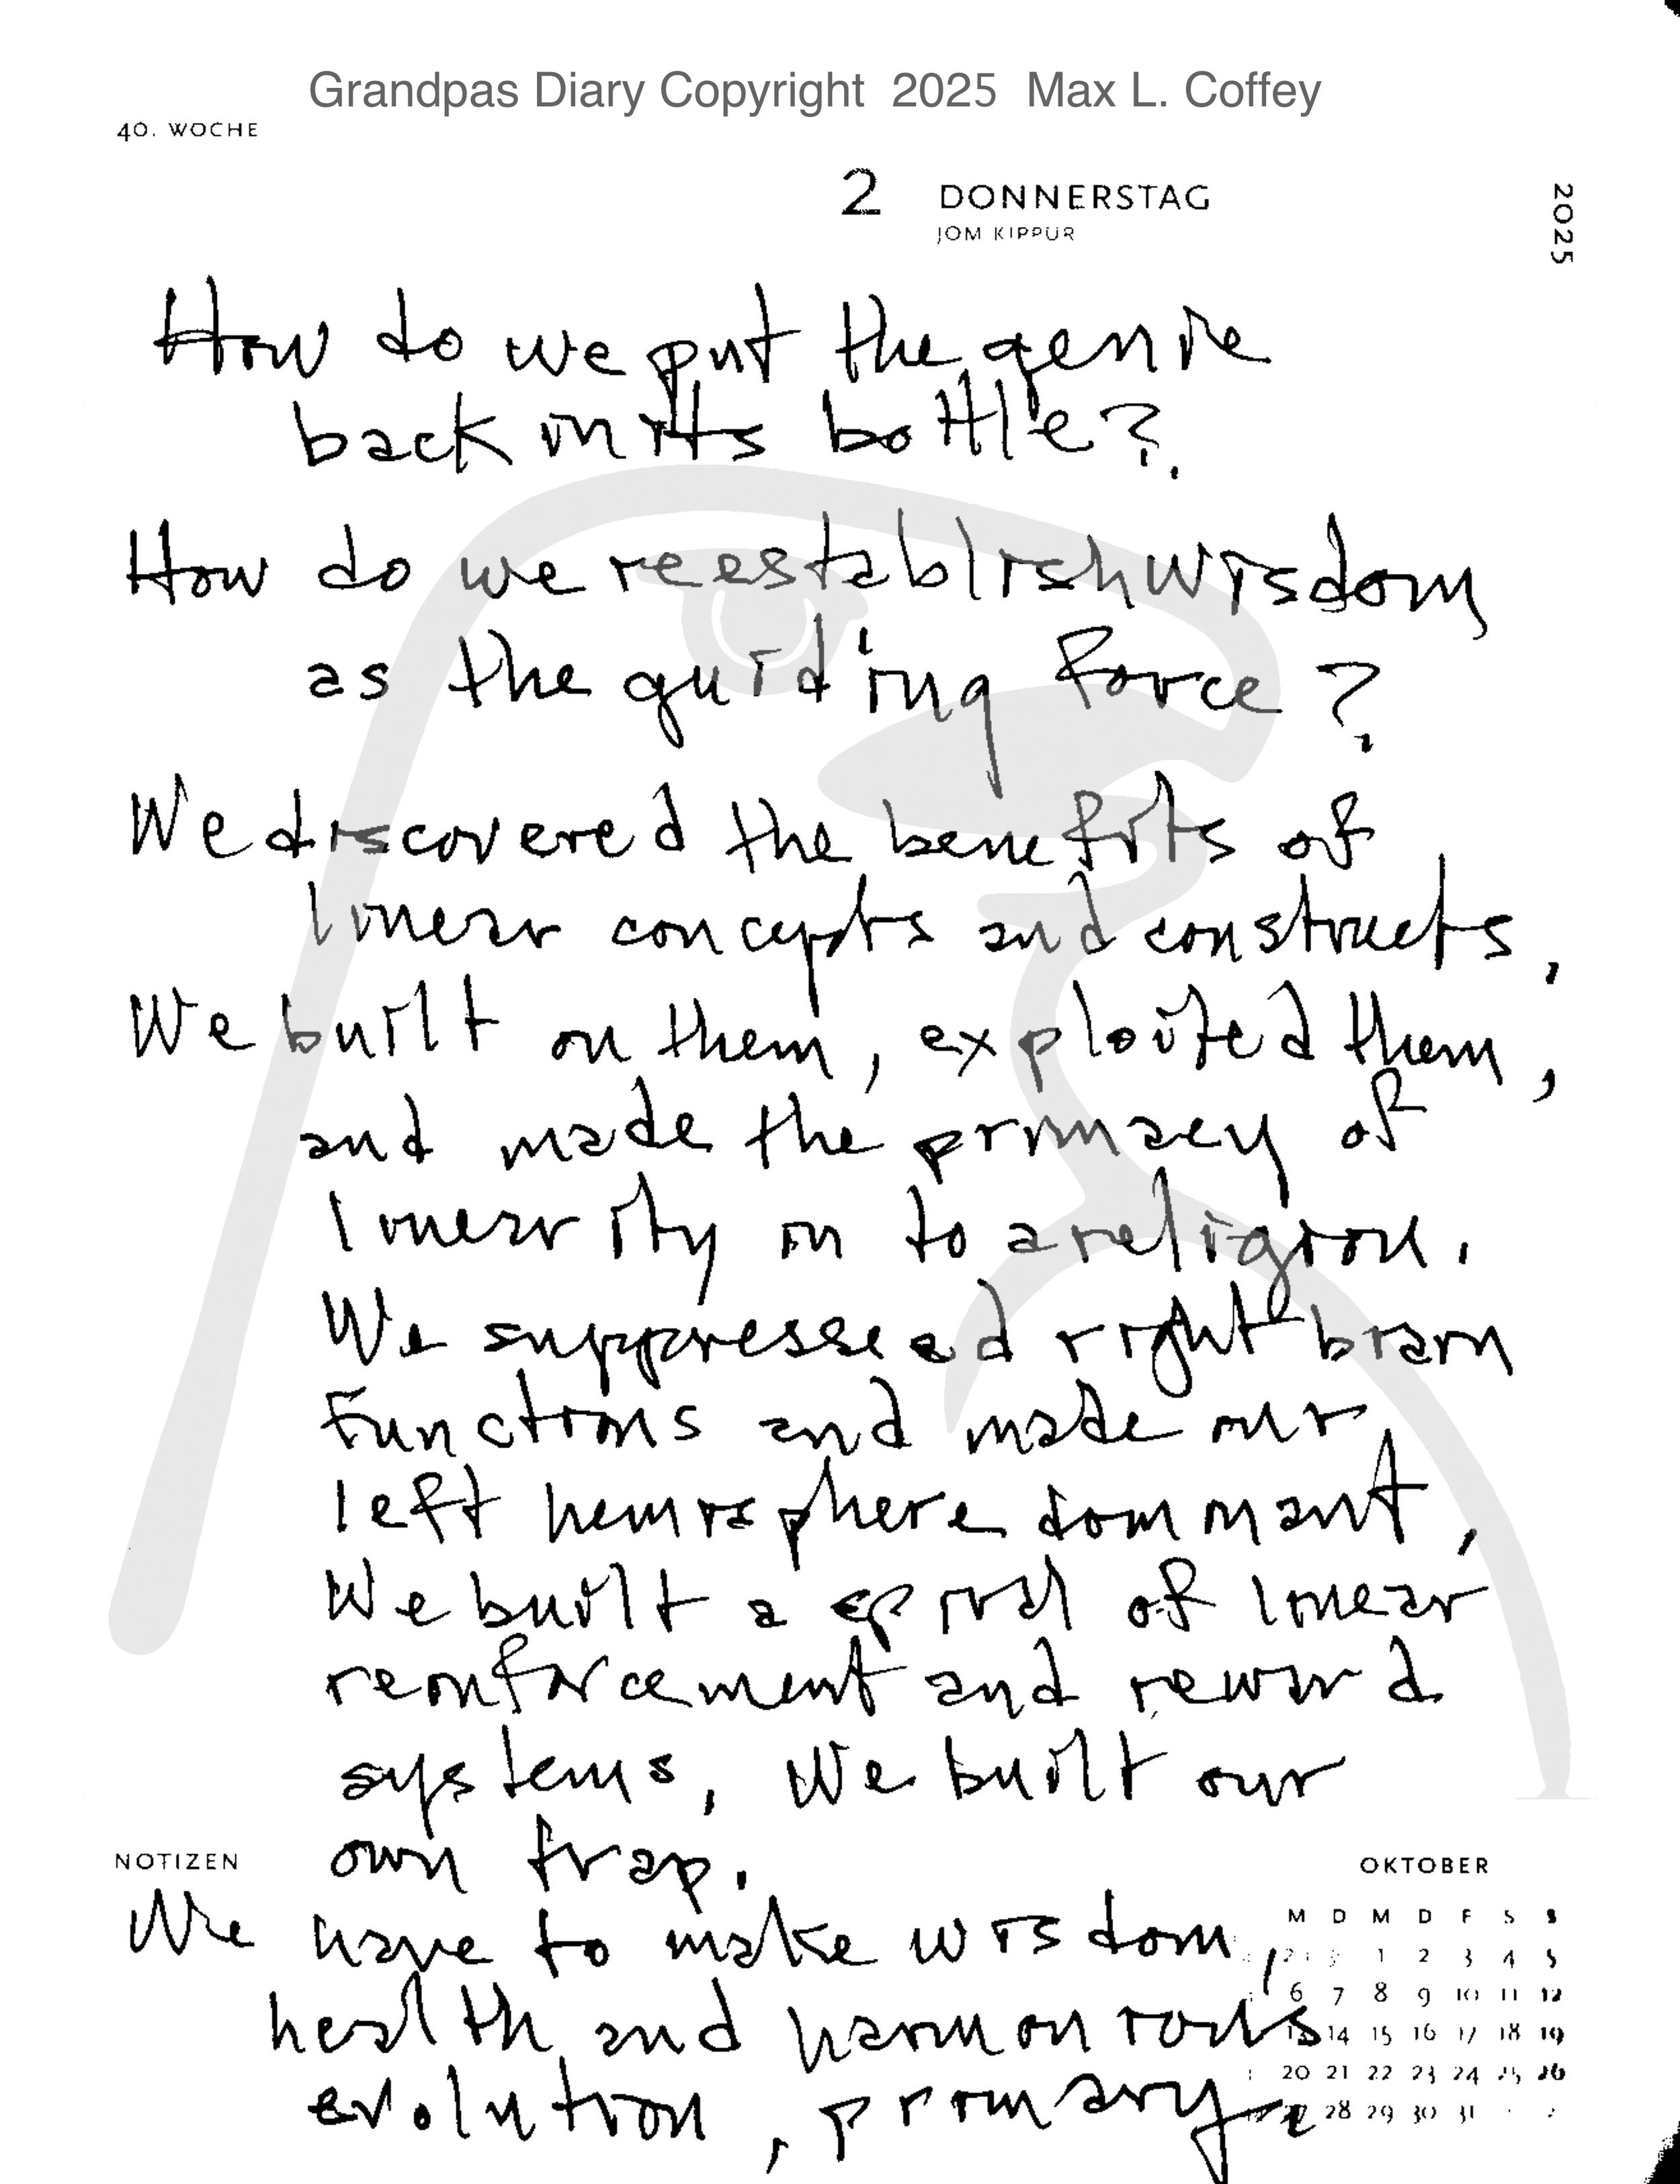 Grandpas Diary Copyright 2025 Max L. Coffey
40. WOCHE
2 DONNERSTAG
JOM KIPPUR
2025
How do we put the genie
back in its bottle?
How do we reestablish wisdom
as the guiding force?
We discovered the benefits of
linear concepts and constructs,
We built on them, exploited them,
and made the primacy of
linearity in to a religion.
We suppressed right brain
functions and made our
left hemisphere dominant,
We built a spiral of linear
reinforcement and reward
systems, We built our
own trap.
We have to make wisdom,
health and harmonious
evolution, primary.
NOTIZEN
OKTOBER
M D M D F S S
1 2 3 4 5
6 7 8 9 10 11 12
13 14 15 16 17 18 19
20 21 22 23 24 25 26
27 28 29 30 31